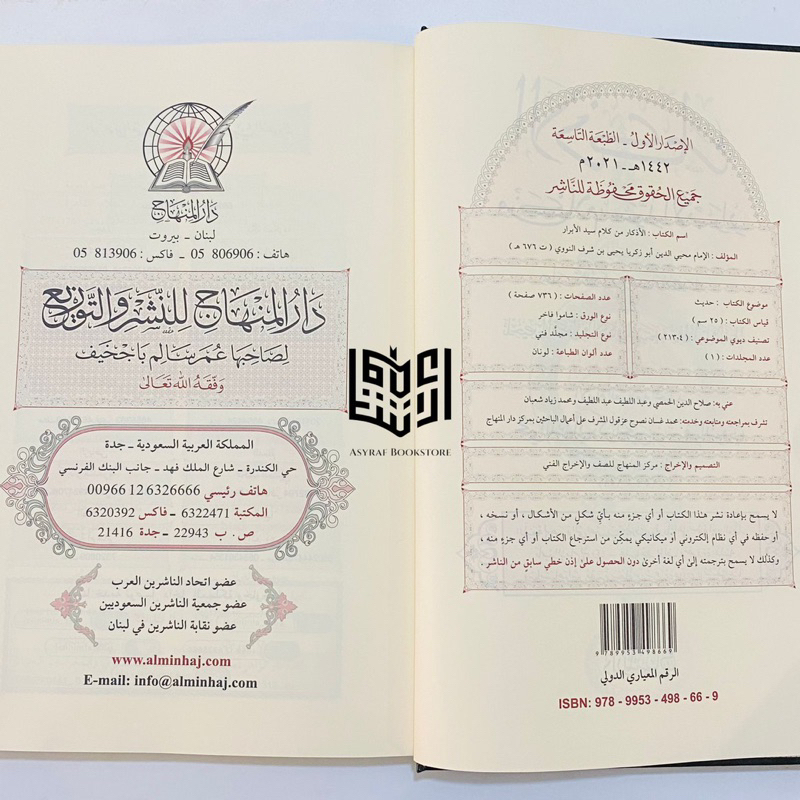 الإصدار الأول - الطبعة التاسعة
١٤٤٢هـ - ٢٠٢١م
جميع الحقوق محفوظة للناشر
اسم الكتاب : الأذكار من كلام سيد الأبرار
المؤلف : الإمام محيي الدين أبو زكريا يحيى بن شرف النووي ( ت ٦٧٦ هـ )
موضوع الكتاب : حديث
قياس الكتاب : ( ٢٥ سم )
تصنيف ديوي الموضوعي : ( ٢١٣،٤ )
عدد المجلدات : ( ١ )
عدد الصفحات : ( ٧٣٦ صفحة )
نوع الورق : شاموا فاخر
نوع التجليد : مجلد فني
عدد ألوان الطباعة : لونان
عني به: صلاح الدين الحمصي وعبد اللطيف عبد اللطيف ومحمد زياد شعبان
تشرف بمراجعته ومتابعته وخدمته: محمد غسان نصوح عزقول المشرف على أعمال الباحثين بمركز دار المنهاج
التصميم والإخراج : مركز المنهاج للصف والإخراج الفني
لا يسمح بإعادة نشر هذا الكتاب أو أي جزء منه بأي شكل من الأشكال ، أو نسخه ،
أو حفظه في أي نظام إلكتروني أو ميكانيكي يمكن من استرجاع الكتاب أو أي جزء منه ،
وكذلك لا يسمح بترجمته إلى أي لغة أخرى دون الحصول على إذن خطي سابق من الناشر .
9 789953 498669
الرقم المعياري الدولي
ISBN: 978 - 9953 - 498 - 66 - 9
دار المنهاج
لبنان - بيروت
هاتف : 806906 05 - فاكس : 813906 05
دار المنهاج للنشر والتوزيع
لصاحبها عمر سالم باجخيف
وفقه الله تعالى
المملكة العربية السعودية - جدة
حي الكندرة - شارع الملك فهد - جانب البنك الفرنسي
هاتف رئيسي 6326666 12 00966
المكتبة 6322471 - فاكس 6320392
ص. ب 22943 - جدة 21416
عضو اتحاد الناشرين العرب
عضو جمعية الناشرين السعوديين
عضو نقابة الناشرين في لبنان
www.alminhaj.com
E-mail: info@alminhaj.com
ASYRAF BOOKSTORE